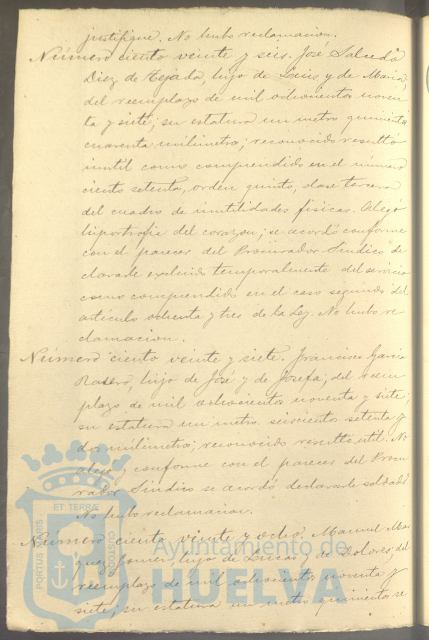 justifique. No hubo reclamacion.
Número ciento veinte y seis. José Salcedo
Diez de Tejada, hijo de Luis y de Maria,
del reemplazo de mil ochocientos noven
ta y siete; su estatura un metro quinientos
cuarenta milimetros; reconocido resultó
inutil como comprendido en el número
ciento setenta, orden quinto, clase tercera
del cuadro de inutilidades fisicas. Alegó
hipertrofia del corazon; se acordó conforme
con el parecer del Procurador Sindico de
clararle excluido temporalmente del servicio
como comprendido en el caso segundo del
articulo ochenta y tres de la Ley. No hubo re
clamacion.
Número ciento veinte y siete. Francisco Garcia
hijo de José y de Josefa; del reem
plazo de mil ochocientos noventa y siete;
su estatura un metro seiscientos setenta y
dos milimetros; reconocido resultó util. No
alegó y conforme con el parecer del Procu
rador Sindico se acordó declararle soldado
No hubo reclamacion.
Número ciento veinte y ocho. Manuel
hijo de Lucas y de Dolores; del
reemplazo de mil ochocientos noventa y
siete; su estatura un metro quinientos se
PORTUS MARIS
ET TERRÆ
CUSTODIA
Ayuntamiento de
HUELVA